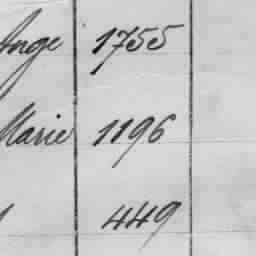 Ange 1755
Marie 1196
449